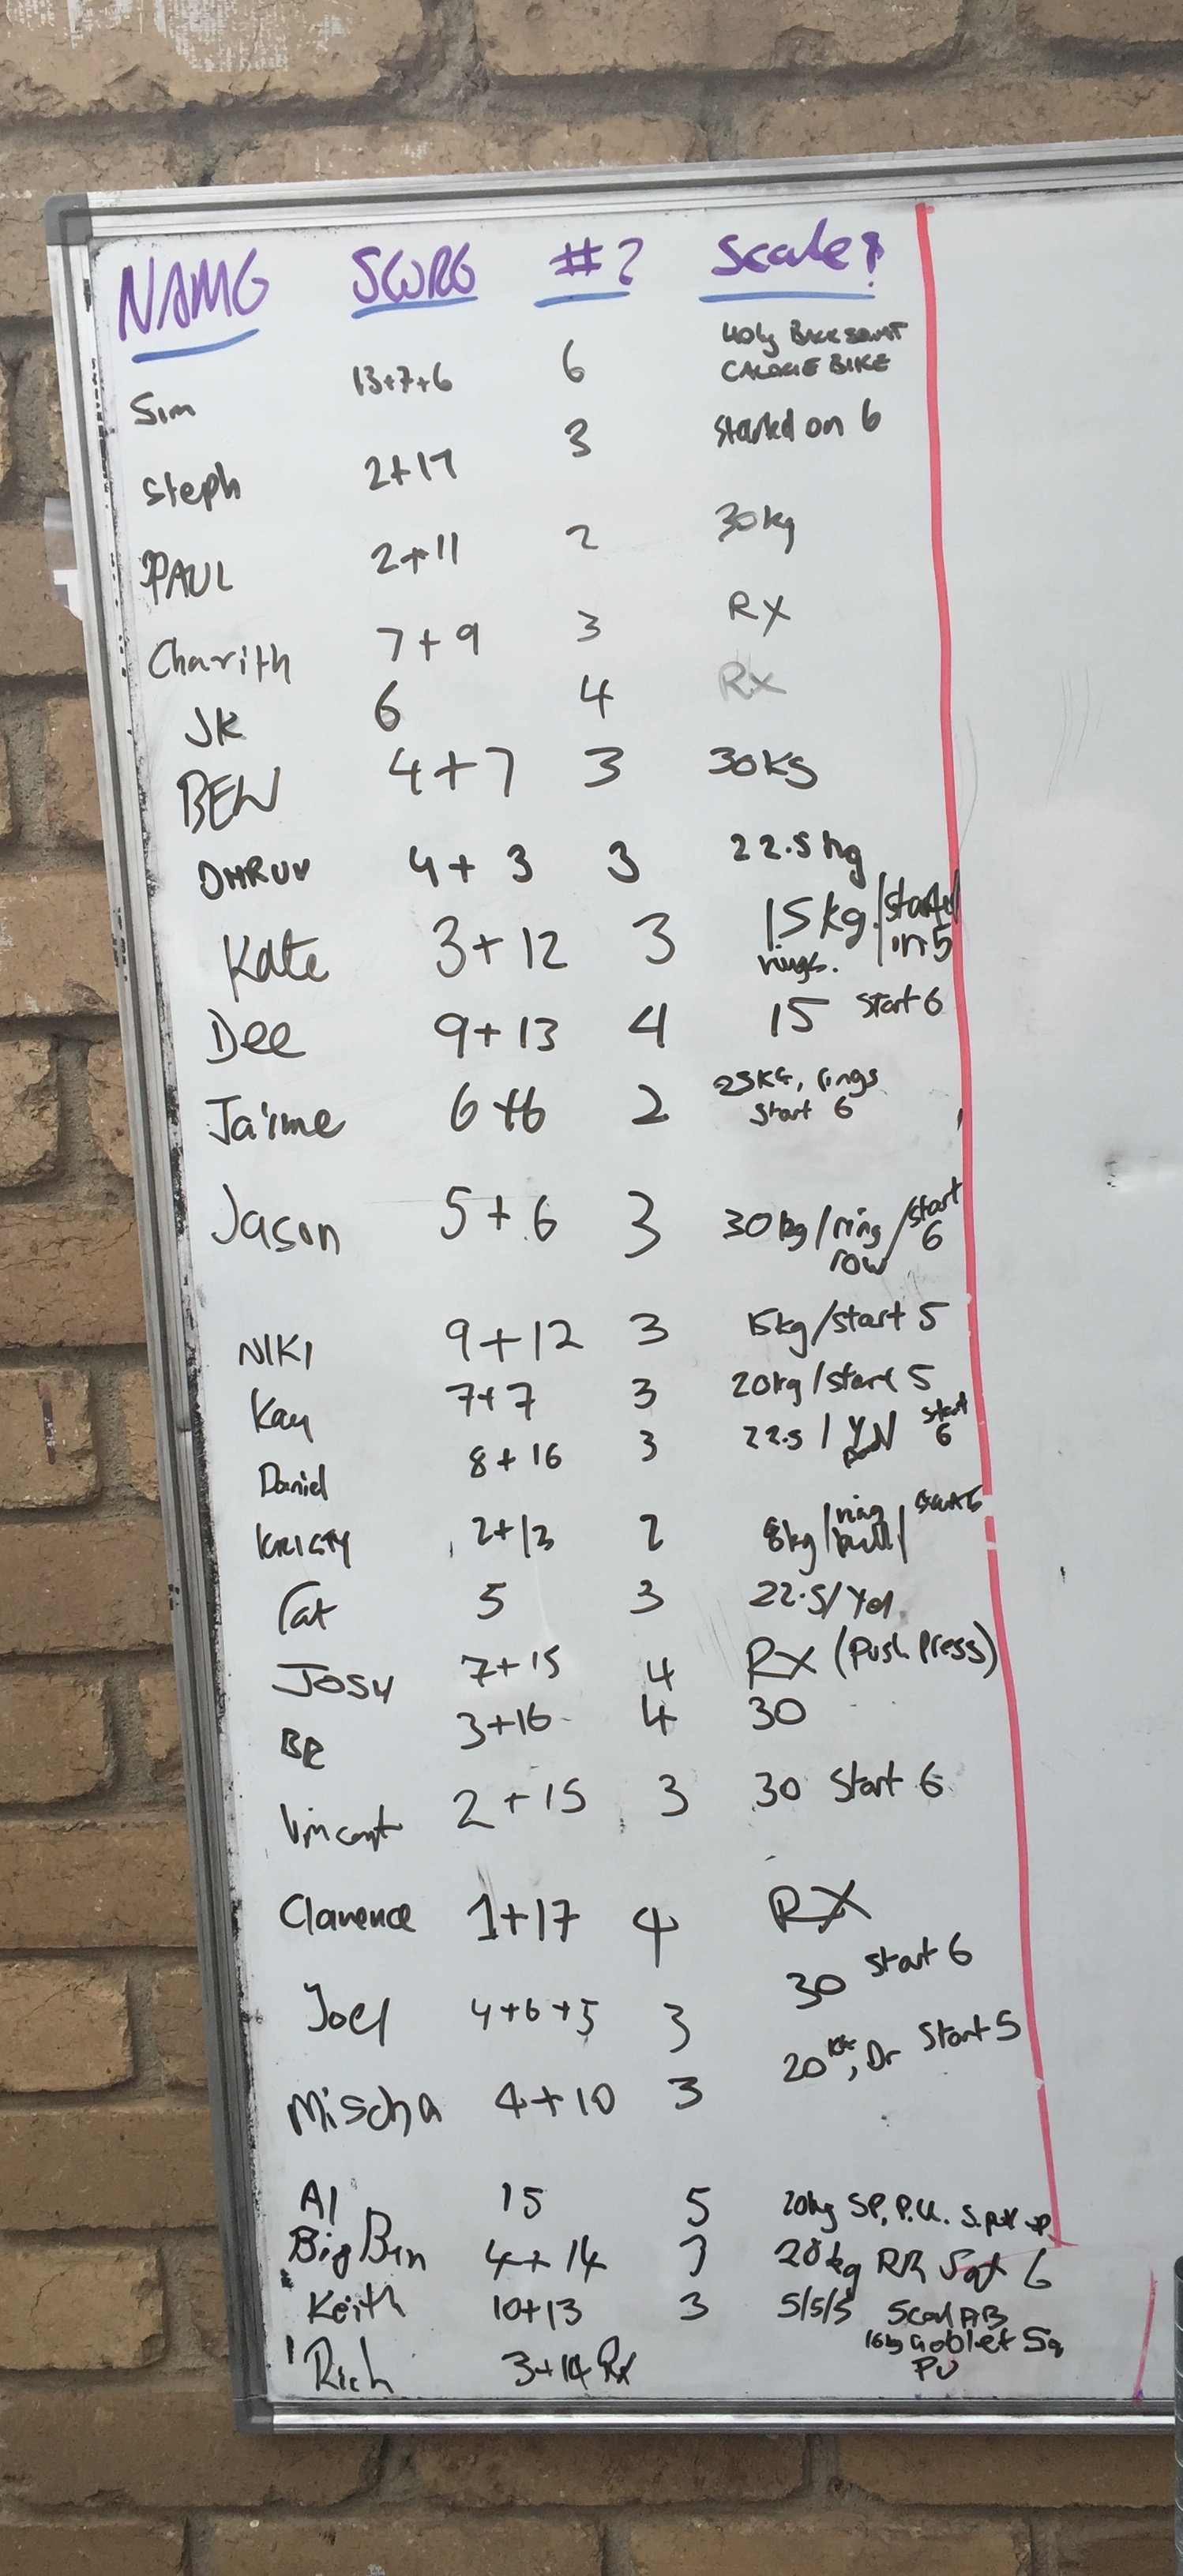 NAME SCORE #? Scale?
Sim 13+7+6 6 40kg BACK SQUAT
CALORIE BIKE
Steph 2+17 3 started on 6
PAUL 2+11 2 30kg
Charith 7+9 3 RX
JK 6 4 Rx
BEN 4+7 3 30KG
DHRUV 4+3 3 22.5kg
Kate 3+12 3 15kg/started in 5
rings.
Dee 9+13 4 15 Start 6
Jaime 6+6 2 25KG, rings
start 6
Jason 5+6 3 30kg/ring row/start 6
NIKI 9+12 3 15kg/start 5
Kay 7+7 3 20kg/start 5
Daniel 8+16 3 22.5 / start 6
KRISTY 2+13 2 8kg/ring pull/
Cat 5 3 22.5/Yel
Josh 7+15 4 RX (Push Press)
BR 3+16 4 30
Vincent 2+15 3 30 Start 6
Clarence 1+17 4 RX
Joel 4+6+5 3 30 start 6
Mischa 4+10 3 20KG, Dr Start 5
Al 15 5 20kg SP, P.U.
Big Ben 4+14 3 20kg RR 6
Keith 10+13 3 5/5/5 Scal AB
16kg Goblet Sq
PU
Rich 3+14 Rx